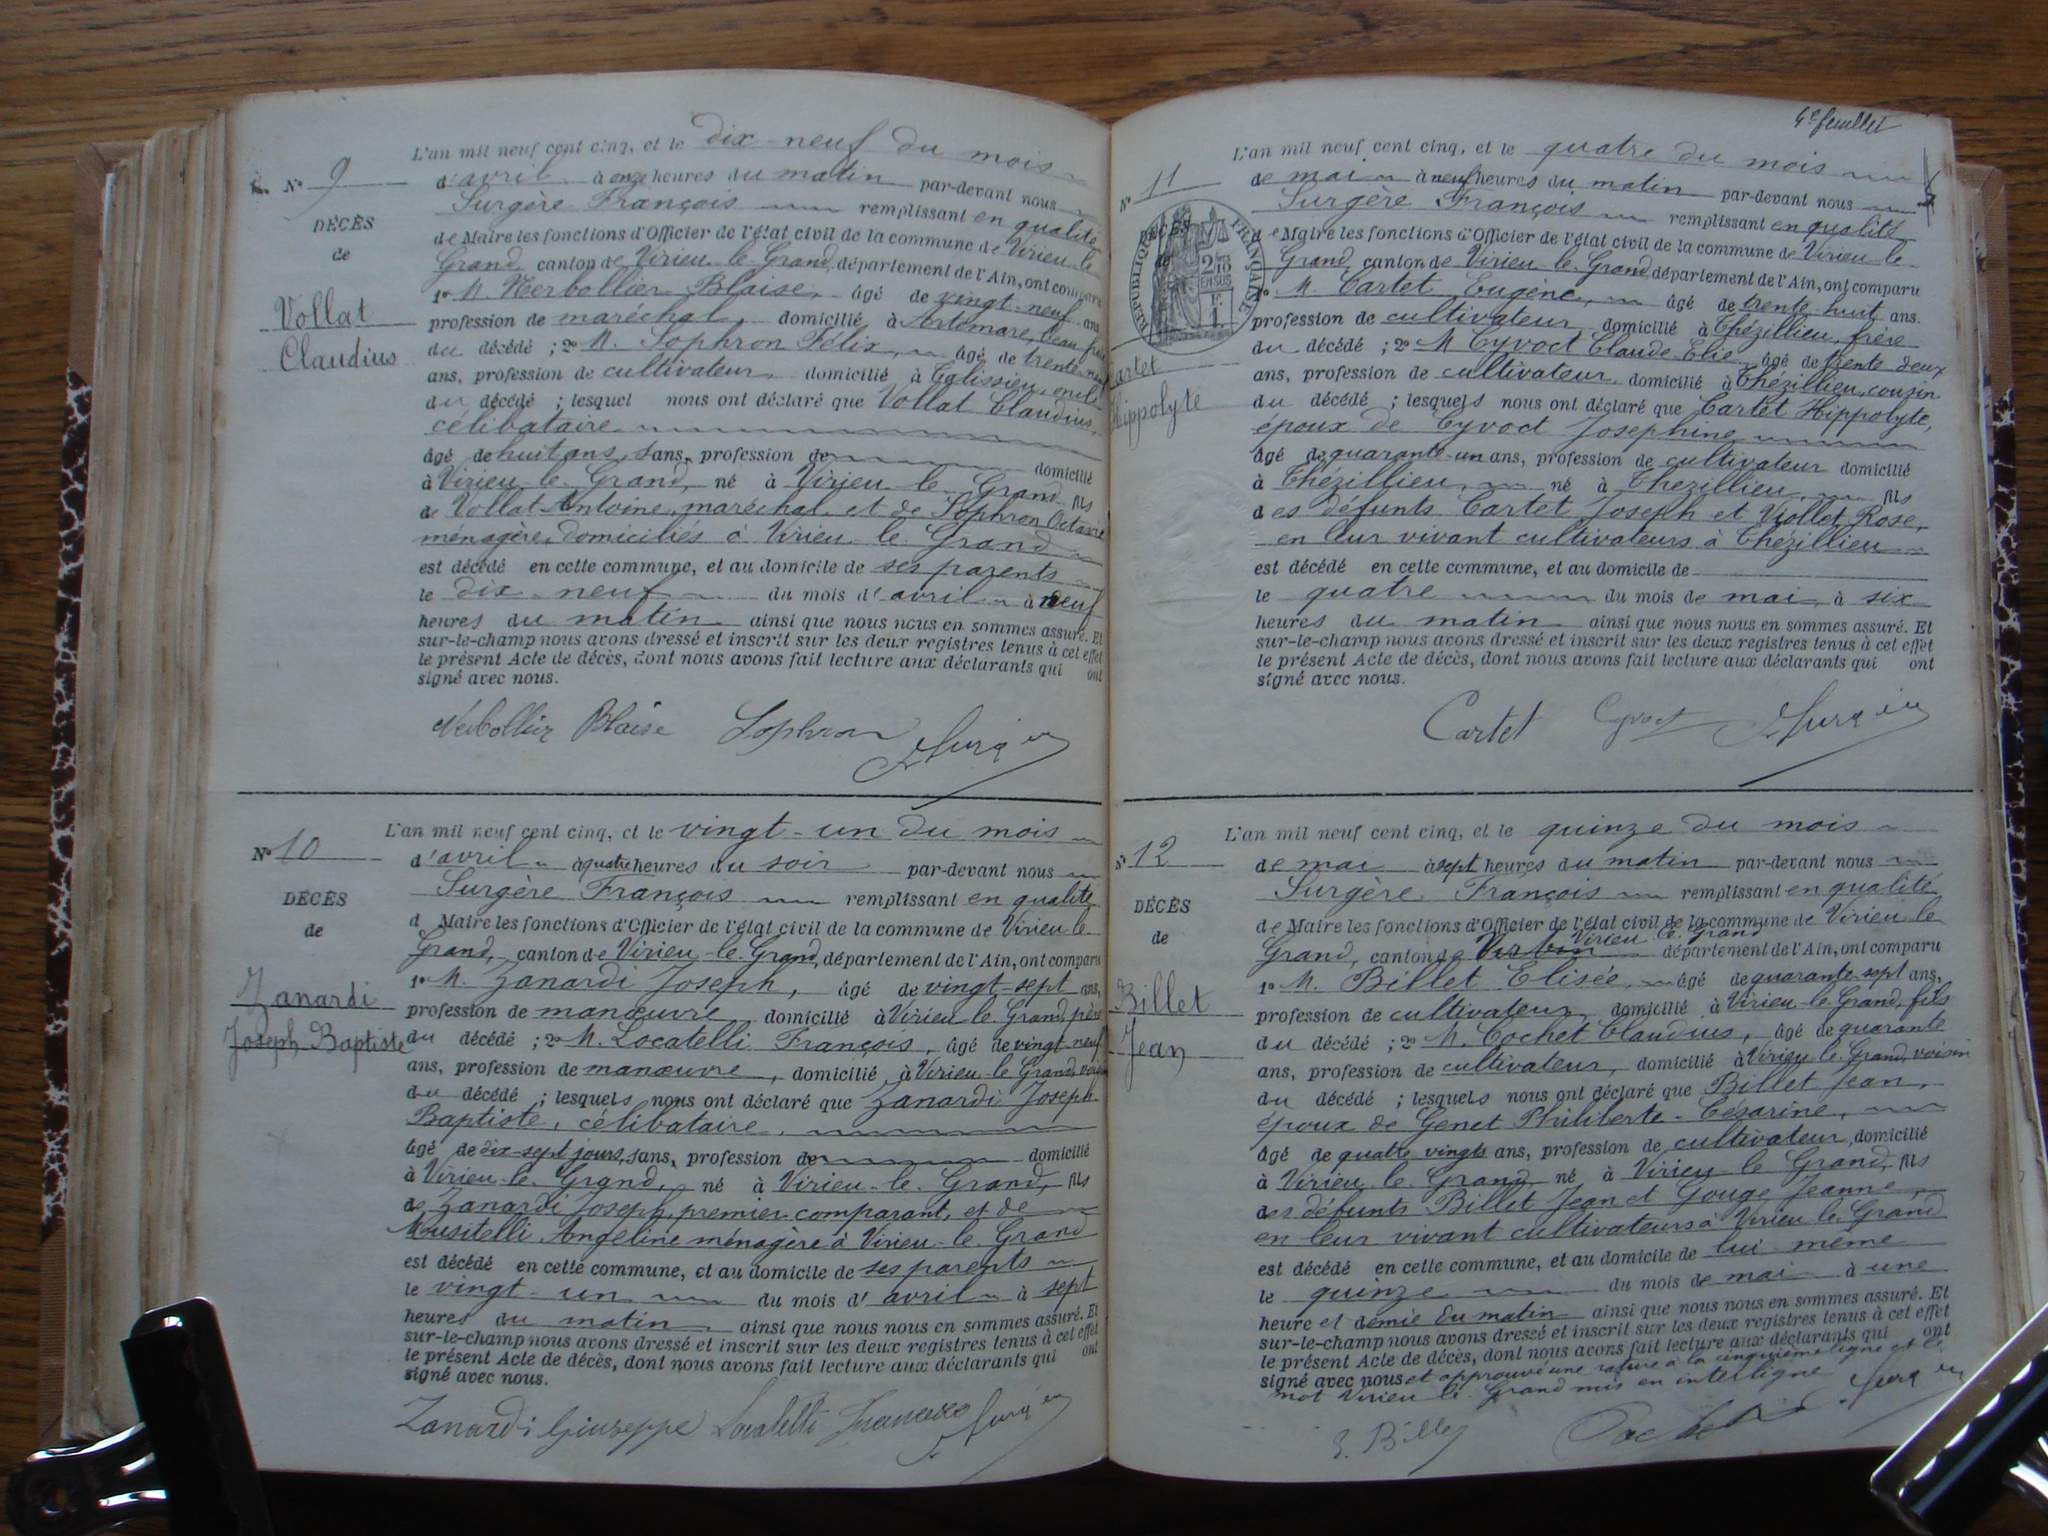 N° 9
DÉCÈS
de
Vollat
Claudius
L'an mil neuf cent cinq, et le dix-neuf du mois
d'avril à onze heures du matin par-devant nous
Surgère François remplissant en qualité
de Maire les fonctions d'Officier de l'état civil de la commune de Virieu-le-
Grand, canton de Virieu-le-Grand, département de l'Ain, ont comparu
1° M. Nerbollier Blaise, âgé de vingt-neuf ans
profession de maréchal, domicilié à Artemare, beau-frère
du décédé ; 2° M. Sophron Félix, âgé de trente-neuf
ans, profession de cultivateur, domicilié à Ceglissieu, oncle
du décédé ; lesquel nous ont déclaré que Vollat Claudius,
célibataire
âgé de huit ans, sans profession de domicilié
à Virieu-le-Grand, né à Virieu-le-Grand, fils
de Vollat Antoine, maréchal et de Sophron Octavie
ménagère, domiciliés à Virieu-le-Grand
est décédé en cette commune, et au domicile de ses parents
le dix-neuf du mois d'avril à neuf
heures du matin ainsi que nous nous en sommes assuré. Et
sur-le-champ nous avons dressé et inscrit sur les deux registres tenus à cet effet
le présent Acte de décès, dont nous avons fait lecture aux déclarants qui ont
signé avec nous.
Nerbollier Blaise Sophron Surgère
N° 10
DÉCÈS
de
Zanardi
Joseph-Baptiste
L'an mil neuf cent cinq, et le vingt-un du mois
d'avril à quatre heures du soir par-devant nous
Surgère François remplissant en qualité
d Maire les fonctions d'Officier de l'état civil de la commune de Virieu-le-
Grand, canton de Virieu-le-Grand, département de l'Ain, ont comparu
1° M. Zanardi Joseph, âgé de vingt-sept ans,
profession de manœuvre domicilié à Virieu-le-Grand, père
du décédé ; 2° M. Locatelli François, âgé de vingt-neuf
ans, profession de manœuvre, domicilié à Virieu-le-Grand, voisin
du décédé ; lesquels nous ont déclaré que Zanardi Joseph-
Baptiste, célibataire,
âgé de dix-sept jours, sans, profession de domicilié
à Virieu-le-Grand, né à Virieu-le-Grand, fils
de Zanardi Joseph, premier comparant, et de
Musitelli Angeline ménagère à Virieu-le-Grand
est décédé en cette commune, et au domicile de ses parents
le vingt-un du mois d'avril à sept
heures du matin ainsi que nous nous en sommes assuré. Et
sur-le-champ nous avons dressé et inscrit sur les deux registres tenus à cet effet
le présent Acte de décès, dont nous avons fait lecture aux déclarants qui ont
signé avec nous.
Zanardi Giuseppe Locatelli Francesco Surgère
4e feuillet
N° 11
DÉCÈS
RÉPUBLIQUE FRANÇAISE
2/10 EN SUS
1 F.
Cartet
Hippolyte
L'an mil neuf cent cinq, et le quatre du mois
de mai à neuf heures du matin par-devant nous
Surgère François remplissant en qualité
de Maire les fonctions d'Officier de l'état civil de la commune de Virieu-le-
Grand, canton de Virieu-le-Grand département de l'Ain, ont comparu
1° M. Cartet Eugène, âgé de trente-huit ans.
profession de cultivateur domicilié à Thézillieu, frère
du décédé ; 2° M Cyvoct Claude-Elie âgé de trente-deux
ans, profession de cultivateur domicilié à Thézillieu, cousin
du décédé ; lesquels nous ont déclaré que Cartet Hippolyte,
époux de Cyvoct Josephine
âgé de quarante-un ans, profession de cultivateur domicilié
à Thézillieu, né à Thézillieu, fils
des défunts Cartet Joseph et Viollet Rose,
en leur vivant cultivateurs à Thézillieu
est décédé en cette commune, et au domicile de
le quatre du mois de mai à six
heures du matin ainsi que nous nous en sommes assuré. Et
sur-le-champ nous avons dressé et inscrit sur les deux registres tenus à cet effet
le présent Acte de décès, dont nous avons fait lecture aux déclarants qui ont
signé avec nous.
Cartet Cyvoct Surgère
N° 12
DÉCÈS
de
Billet
Jean
L'an mil neuf cent cinq, et le quinze du mois
de mai à sept heures du matin par-devant nous
Surgère François remplissant en qualité
de Maire les fonctions d'Officier de l'état civil de la commune de Virieu-le
Virieu-le-Grand
Grand, canton de département de l'Ain, ont comparu
1° M. Billet Elisée, âgé de quarante-sept ans,
profession de cultivateur domicilié à Virieu-le-Grand, fils
du décédé ; 2° M. Cochet Claudius, âgé de quarante
ans, profession de cultivateur, domicilié à Virieu-le-Grand, voisin
du décédé ; lesquels nous ont déclaré que Billet Jean,
époux de Genet Philiberte-Cézarine,
âgé de quatre-vingts ans, profession de cultivateur, domicilié
à Virieu-le-Grand né à Virieu-le-Grand, fils
des défunts Billet Jean et Gouge Jeanne,
en leur vivant cultivateurs à Virieu-le-Grand
est décédé en cette commune, et au domicile de lui-même
le quinze du mois de mai à une
heure et demie du matin ainsi que nous nous en sommes assuré. Et
sur-le-champ nous avons dressé et inscrit sur les deux registres tenus à cet effet
le présent Acte de décès, dont nous avons fait lecture aux déclarants qui ont
signé avec nous et approuvé une rature à la cinquième ligne et le
mot Virieu-le-Grand mis en interligne
E. Billet Cochet Surgère